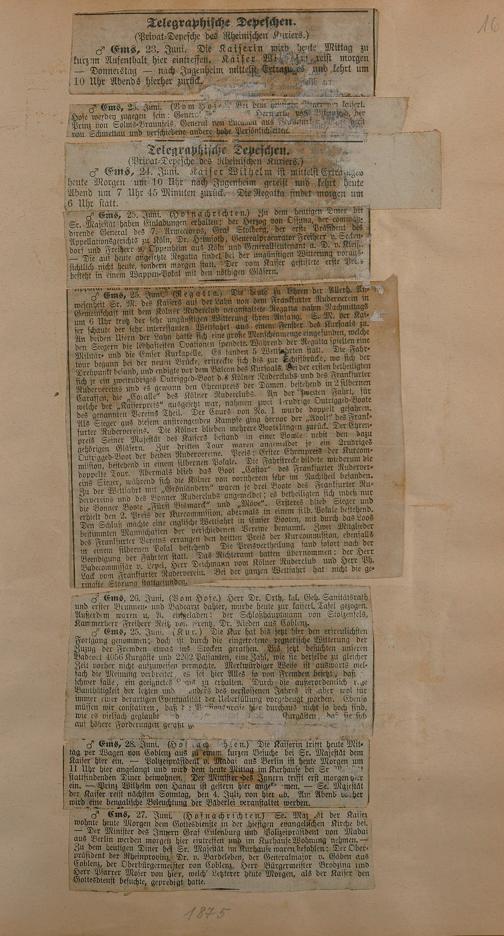 16
Telegraphische Depeschen.
(Privat-Depesche des Rheinischen Kuriers.)
♂ Ems, 23. Juni. Die Kaiserin wird heute Mittag zu
kurzem Aufenthalt hier eintreffen. Kaiser Wil reist morgen
— Donnerstag — nach Jugenheim mittelst Extrazuges und kehrt um
10 Uhr Abends hierher zurück.
♂ Ems, 23. Juni. (Vom Hofe.) Bei dem
Hofe werden zugegen sein: General
Prinz von Solms-Braunfels, General von
von Schmettau und verschiedene andere hohe Persönlichkeiten.
Telegraphische Depeschen.
(Privat-Depesche des Rheinischen Kuriers.)
♂ Ems, 24. Juni. Kaiser Wilhelm ist mittelst Extrazuges
heute Morgen um 10 Uhr nach Jugenheim gereist und kehrt heute
Abend um 7 Uhr 45 Minuten zurück. Die Regatta findet morgen um
6 Uhr statt.
♂ Ems, 25. Juni. (Hofnachrichten.) Zu dem heutigen Diner bei
Sr. Majestät haben Einladungen erhalten: der Herzog von Ossuna, der comman-
dirende General des 7. Armeecorps, Graf Stolberg, der erste Präsident des
Appellationsgerichts zu Köln, Dr. Heimsoeth, Generalprocurator Freiherr v. Secken-
dorf und Freiherr v. Oppenheim aus Köln und Generallieutenant a. D. v. Kleist.
— Die auf heute angesetzte Regatta findet bei der ungünstigen Witterung voraus-
sichtlich nicht heute, sondern morgen statt. Der vom Kaiser gestiftete erste Preis
besteht in einem Wappen-Pokal mit den nöthigen Gläsern.
♂ Ems, 25. Juni. (Regatta.) Die heute zu Ehren der Allerh. An-
wesenheit Sr. M. des Kaisers auf der Lahn von dem Frankfurter Ruderverein in
Gemeinschaft mit dem Kölner Ruderclub veranstaltete Regatta nahm Nachmittags
um 6 Uhr trotz der sehr ungünstigen Witterung ihren Anfang. S. M. der Kai-
ser schaute der sehr interessanten Wettfahrt aus einem Fenster des Kurhauses zu.
An beiden Ufern der Lahn hatte sich eine große Menschenmenge eingefunden, welche
den Siegern die lebhaftesten Ovationen spendete. Während der Regatta spielten eine
Militär- und die Emser Kurkapelle. Es fanden 5 Wettfahrten statt. Die Fahr-
tour begann bei der neuen Brücke, erstreckte sich bis zur Schiffbrücke, wo sich der
Drehpunkt befand, und endigte vor dem Balcon des Kursaals. An der ersten betheiligten
sich je ein zweirudriges Outrigged-Boot des Kölner Ruderclubs und des Frankfurter
Rudervereins, und es gewann den Ehrenpreis der Damen, bestehend in 2 silbernen
Caraffen, die „Coralle“ des Kölner Ruderclubs. An der zweiten Fahrt, für
welche der „Kaiserpreis“ ausgesetzt war, nahmen zwei 4-rudrige Outrigged-Boote
der genannten Vereine Theil. Der Cours von No. 1 wurde doppelt gefahren.
Als Sieger aus diesem anstrengenden Kampfe ging hervor der „Adolf“ des Frank-
furter Rudervereins. Die Kölner blieben mehrere Bootslängen zurück. Der Ehren-
preis Seiner Majestät des Kaisers bestand in einer Bowle nebst den dazu
gehörigen Gläsern. Zur dritten Tour waren angemeldet je ein 2rudriges
Outrigged-Boot der beiden Rudervereine. Preis: Erster Ehrenpreis der Kurcom-
mission, bestehend in einem silbernen Pokale. Die Fahrstrecke bildete wiederum die
doppelte Tour. Abermals blieb das Boot „Castor“ des Frankfurter Ruderver-
eins Sieger, während sich die Kölner von vornherein sehr im Nachtheil befanden.
Zu der Wettfahrt mit „Grönländern“ waren je drei Boote des Frankfurter Ru-
dervereins und des Bonner Ruderclubs angemeldet; es betheiligten sich indeß nur
die Bonner Boote „Fürst Bismarck“ und „Möve“. Ersteres blieb Sieger und
erhielt den 2. Preis der Kurcommission, abermals in einem silb. Pokale bestehend.
Den Schluß machte eine englische Wettfahrt in Emser Booten, mit durch das Loos
bestimmten Mannschaften der verschiedenen Vereine bemannt. Zwei Mitglieder
des Frankfurter Vereins errangen den dritten Preis der Kurcommission, ebenfalls
in einem silbernen Pokal bestehend. Die Preisvertheilung fand sofort nach der
Beendigung der Fahrten statt. Das Richteramt hatten übernommen: der Herr
Badecommissar v. Lepel, Herr Deichmann vom Kölner Ruderclub und Herr Ph.
Lack vom Frankfurter Ruderverein. Bei der ganzen Wettfahrt hat nicht die ge-
ringste Störung stattgefunden.
♂ Ems, 26. Juni. (Vom Hofe.) Herr Dr. Orth, kgl. Geh. Sanitätsrath
und erster Brunnen- und Badearzt dahier, wurde heute zur kaiserl. Tafel gezogen.
Außerdem waren u. A. eingeladen: der Schloßhauptmann von Stolzenfels,
Kammerherr Freiherr Reitz von Frentz, Dr. Rieden aus Coblenz.
♂ Ems, 25. Juni. (Kur.) Die Kur hat bis jetzt hier den erfreulichsten
Fortgang genommen; doch ist durch die eingetretene regnerische Witterung der
Zuzug der Fremden etwas ins Stocken gerathen. Bis jetzt besuchten unseren
Badeort 4056 Kurgäste und 2202 Passanten, eine Zahl, wie sie derselbe zu gleicher
Zeit vorher nicht aufzuweisen vermochte. Merkwürdiger Weise ist auswärts viel-
fach die Meinung verbreitet, es sei hier Alles so von Fremden besetzt, daß
schwer falle, ein geeignetes zu erhalten. Durch die außerordentlich rege
Bauthätigkeit der letzten und des verflossenen Jahres ist aber wohl für
immer einer derartigen Eventualität der Ueberfüllung vorgebeugt worden. Ebenso
müssen wir constatiren, daß die hier durchaus nicht so hoch sind,
wie es vielfach geglaubt Curgästen, daß sie sich
auf höhere Forderungen gefaßt
♂ Ems, 28. Juni. (Hofnachrichten.) Die Kaiserin trifft heute Mit-
tag per Wagen von Coblenz zu einem kurzen Besuche bei Sr. Majestät dem
Kaiser hier ein. — Polizeipräsident v. Madai aus Berlin ist heute Morgen um
11 Uhr hier angelangt und wird dem heute Mittag im Kurhause bei Sr. M.
stattfindenden Diner beiwohnen. Der Minister des Innern trifft erst morgen hier
ein. — Prinz Wilhelm von Hanau ist gestern hier angekommen. — Se. Majestät
der Kaiser reist nächsten Sonntag, den 4. Juli, von hier ab. Am Abend vorher
wird eine bengalische Beleuchtung der Bäderlei veranstaltet werden.
♂ Ems, 27. Juni. (Hofnachrichten.) Se. Majestät der Kaiser
wohnte heute Morgen dem Gottesdienste in der hiesigen evangelischen Kirche bei.
— Der Minister des Innern Graf Eulenburg und Polizeipräsident von Madai
aus Berlin werden morgen hier eintreffen und im Kurhause Wohnung nehmen. —
Zu dem heutigen Diner bei Sr. Majestät im Kurhause waren befohlen: Der Ober-
präsident der Rheinprovinz Dr. v. Bardeleben, der Generalmajor v. Göben aus
Coblenz, der Oberbürgermeister von Coblenz, Herr Bürgermeister Brodzina und
Herr Pfarrer Moser von hier, welch' Letzterer heute Morgen, als der Kaiser den
Gottesdienst besuchte, gepredigt hatte.
1875